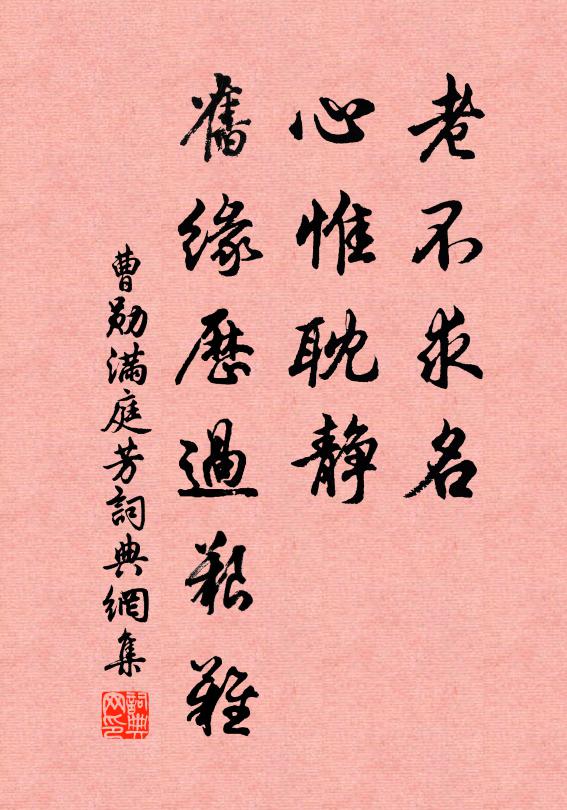 老不求名
心惟耽静
舊緣歷過艱難
曹勛滿庭芳詞典網集
詞典网印